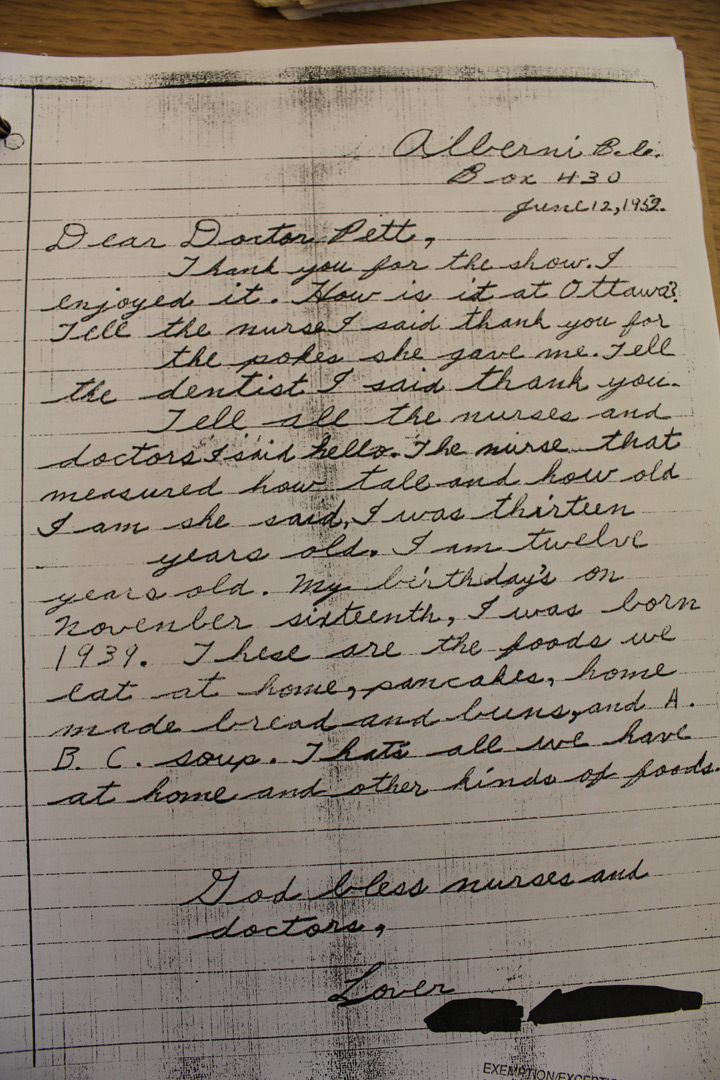 Alberni B.C.
Box 430
June 12, 1952.
Dear Doctor Pett,
Thank you for the show. I
enjoyed it. How is it at Ottawa?
Tell the nurse I said thank you for
the pokes she gave me. Tell
the dentist I said thank you.
Tell all the nurses and
doctors I said hello. The nurse that
measured how tall and how old
I am she said, I was thirteen
years old. I am twelve
years old. My birthday's on
November sixteenth, I was born
1939. These are the foods we
eat at home, pancakes, home
made bread and buns, and A.
B. C. soup. Thats all we have
at home and other kinds of foods.
God bless nurses and
doctors,
Lover
EXEMPTION/EXCEPTIO